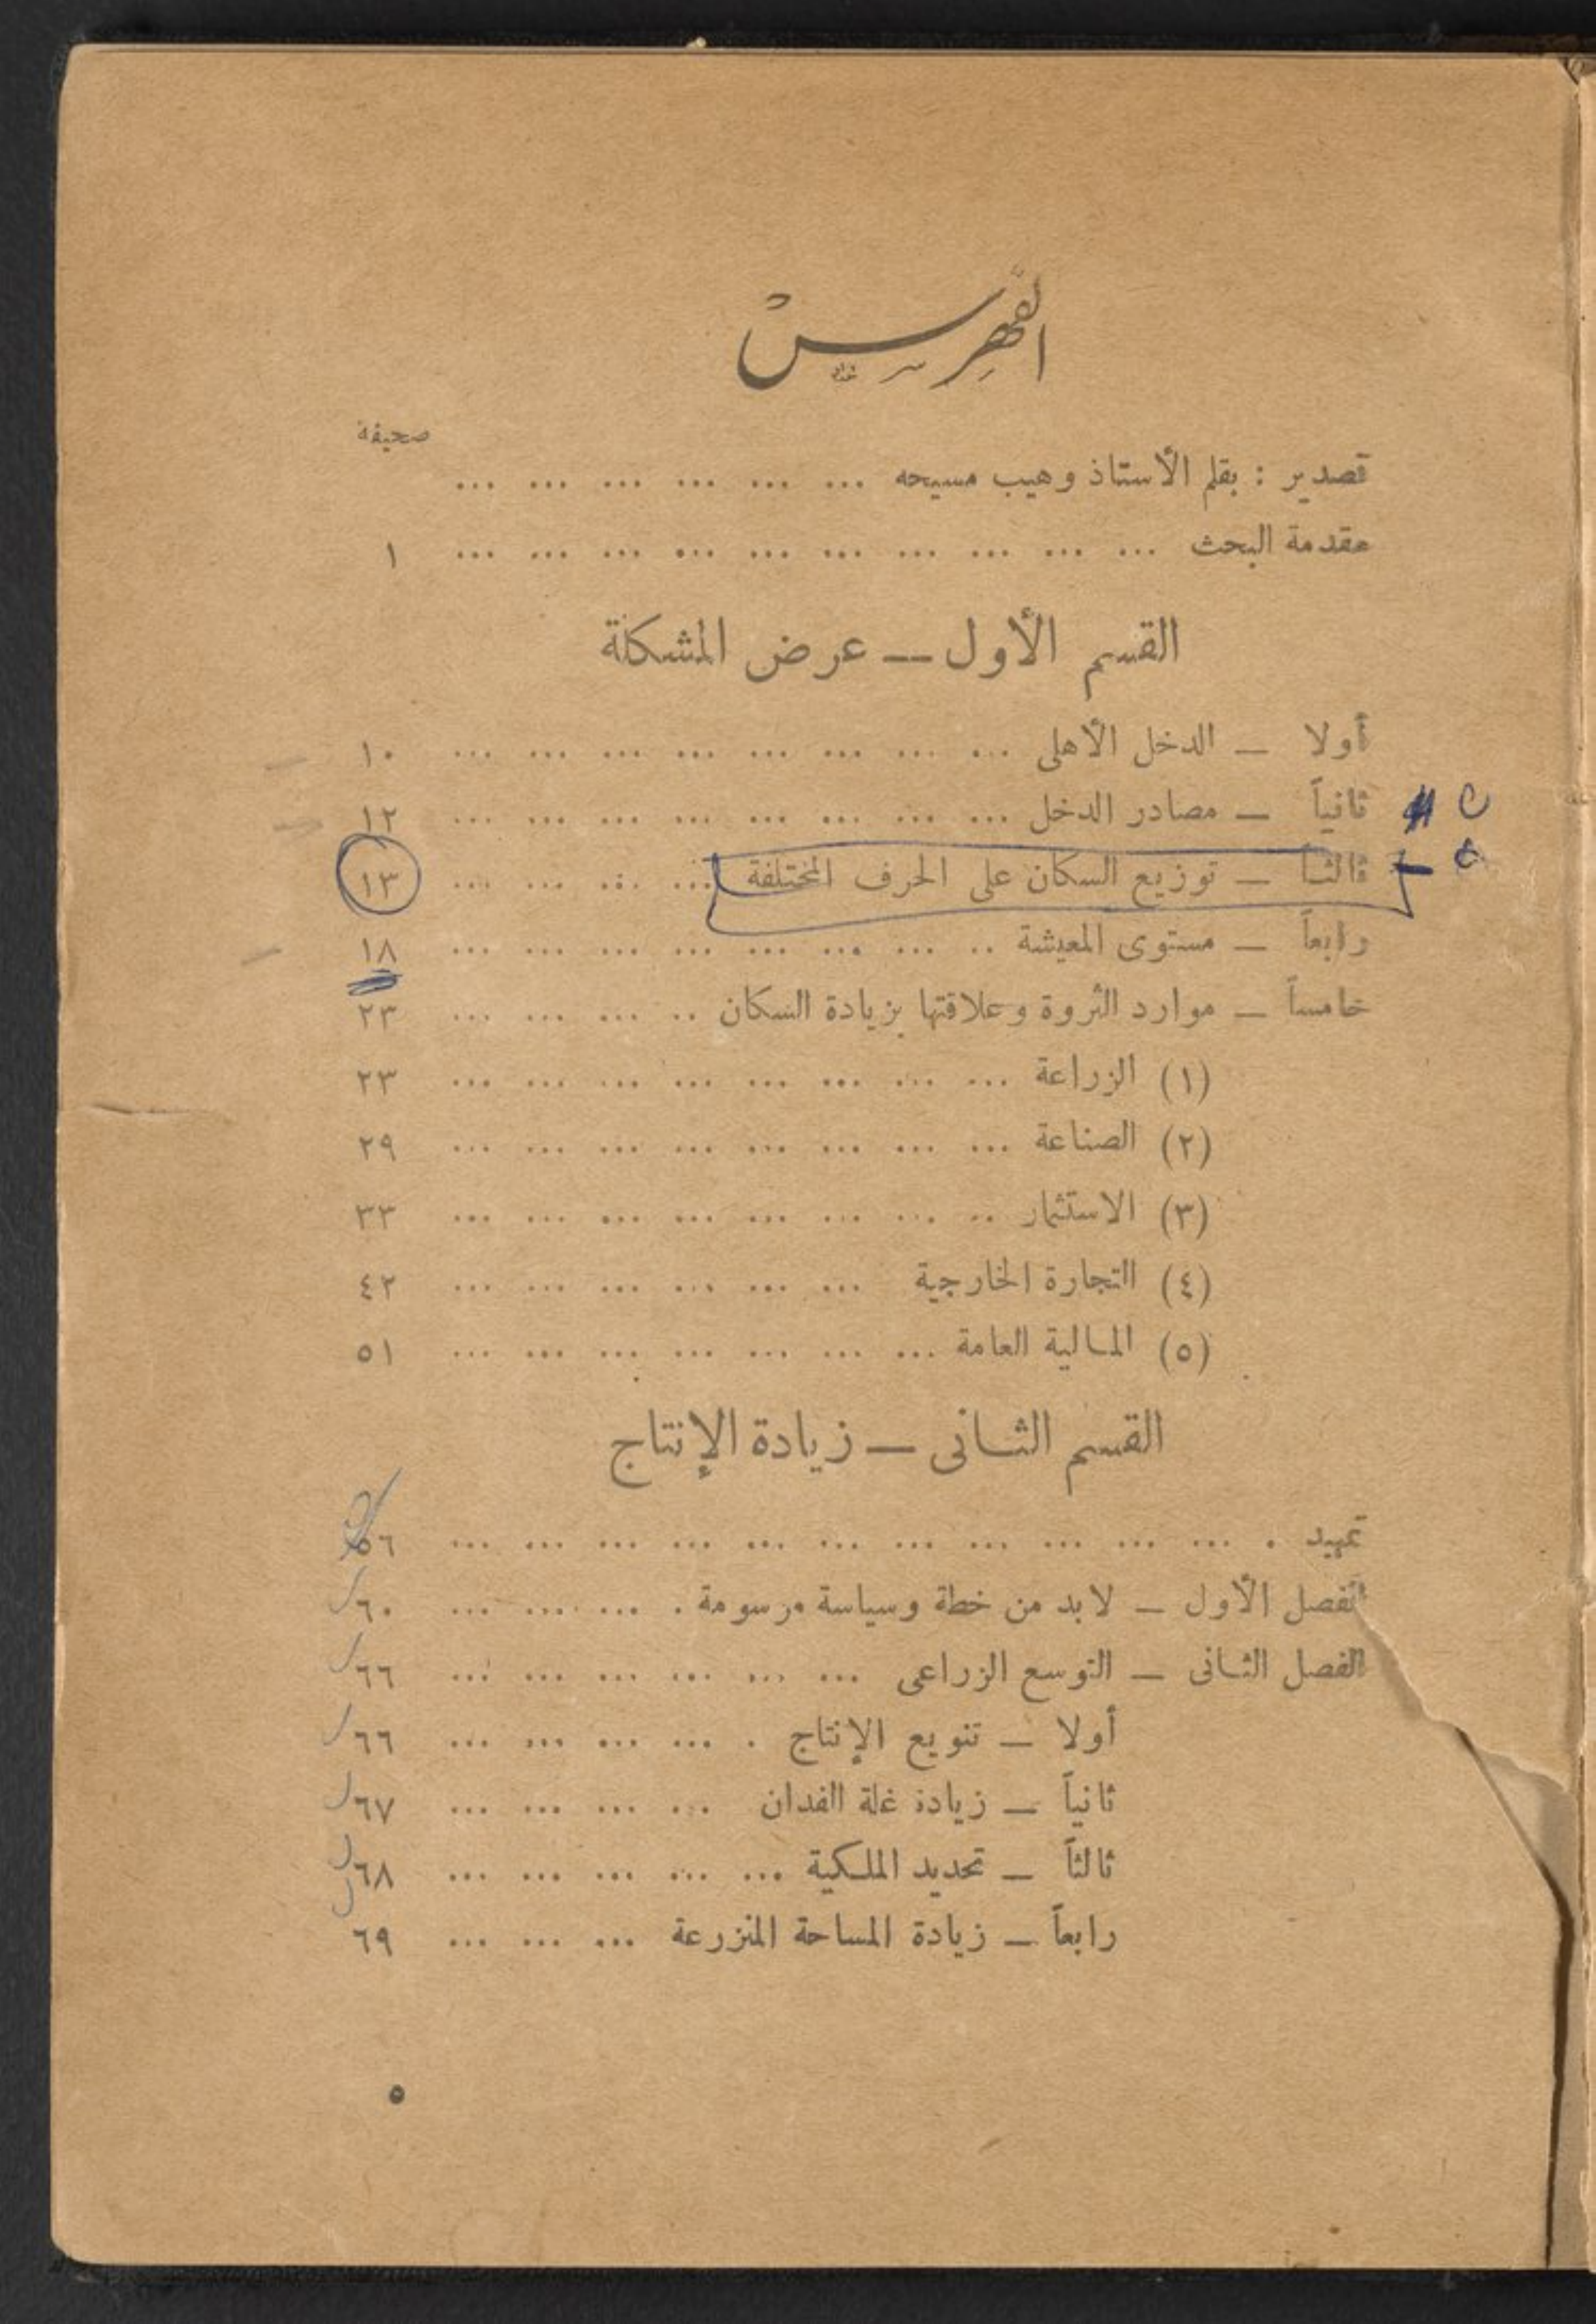 الفهرس
صحيفة
تصدير : بقلم الأستاذ وهيب مسيحه ... ... ... ... ... ...
مقدمة البحث ... ... ... ... ... ... ... ... ... ... ١
القسم الأول — عرض المشكلة
أولا — الدخل الأهلى ... ... ... ... ... ... ... ... ١٠
ثانياً — مصادر الدخل ... ... ... ... ... ... ... ... ١٢
ثالثاً — توزيع السكان على الحرف المختلفة ... ... ... ... ١٣
رابعاً — مستوى المعيشة .. ... ... ... ... ... ... ... ١٨
خامساً — موارد الثروة وعلاقتها بزيادة السكان .. ... ... ... ٢٣
(١) الزراعة ... ... ... ... ... ... ... ... ٢٣
(٢) الصناعة ... ... ... ... ... ... ... ... ٢٩
(٣) الاستثمار .. ... ... ... ... ... ... ... ٣٣
(٤) التجارة الخارجية ... ... ... ... ... ... ٤٢
(٥) المالية العامة ... ... ... ... ... ... ... ٥١
القسم الثانى — زيادة الإنتاج
تمهيد . ... ... ... ... ... ... ... ... ... ... ... ٥٦
الفصل الأول — لابد من خطة وسياسة مرسومة . ... ... ... ٦٠
الفصل الثانى — التوسع الزراعى ... ... ... ... ... ... ٦٦
أولا — تنويع الإنتاج . ... ... ... ... ٦٦
ثانياً — زيادة غلة الفدان ... ... ... ... ٦٧
ثالثاً — تحديد الملكية ... ... ... ... ... ٦٨
رابعاً — زيادة المساحة المنزرعة ... ... ... ٦٩
٥